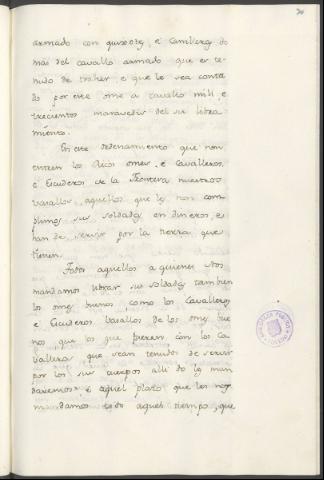 armado con quixotes, e canilleras, de
mas del cavallo armado que es te-
nudo de traher, e que le sea conta
do por este ome a cavallo mill, e
trecientos maravedis del su libra
miento.
En este ordenamiento que non
entren los Ricos omes, e Cavalleros,
e Escuderos de la Frontera nuestros
Vasallos, aquellos que les non com
plimos sus soldadas en dineros, e
han de servir por la tierra que
tienen.
Todos aquellos a quienes Nos
mandamos librar sus soldadas tambien
los omes buenos como los Cavalleros
e Escuderos Vasallos de los omes bue
nos que los que fueren con los ca
valleros que sean tenudos de servir
por los sus cuerpos alli do les man
daremos e aquel plazo que les nos
mandamos todo aquel tiempo, que